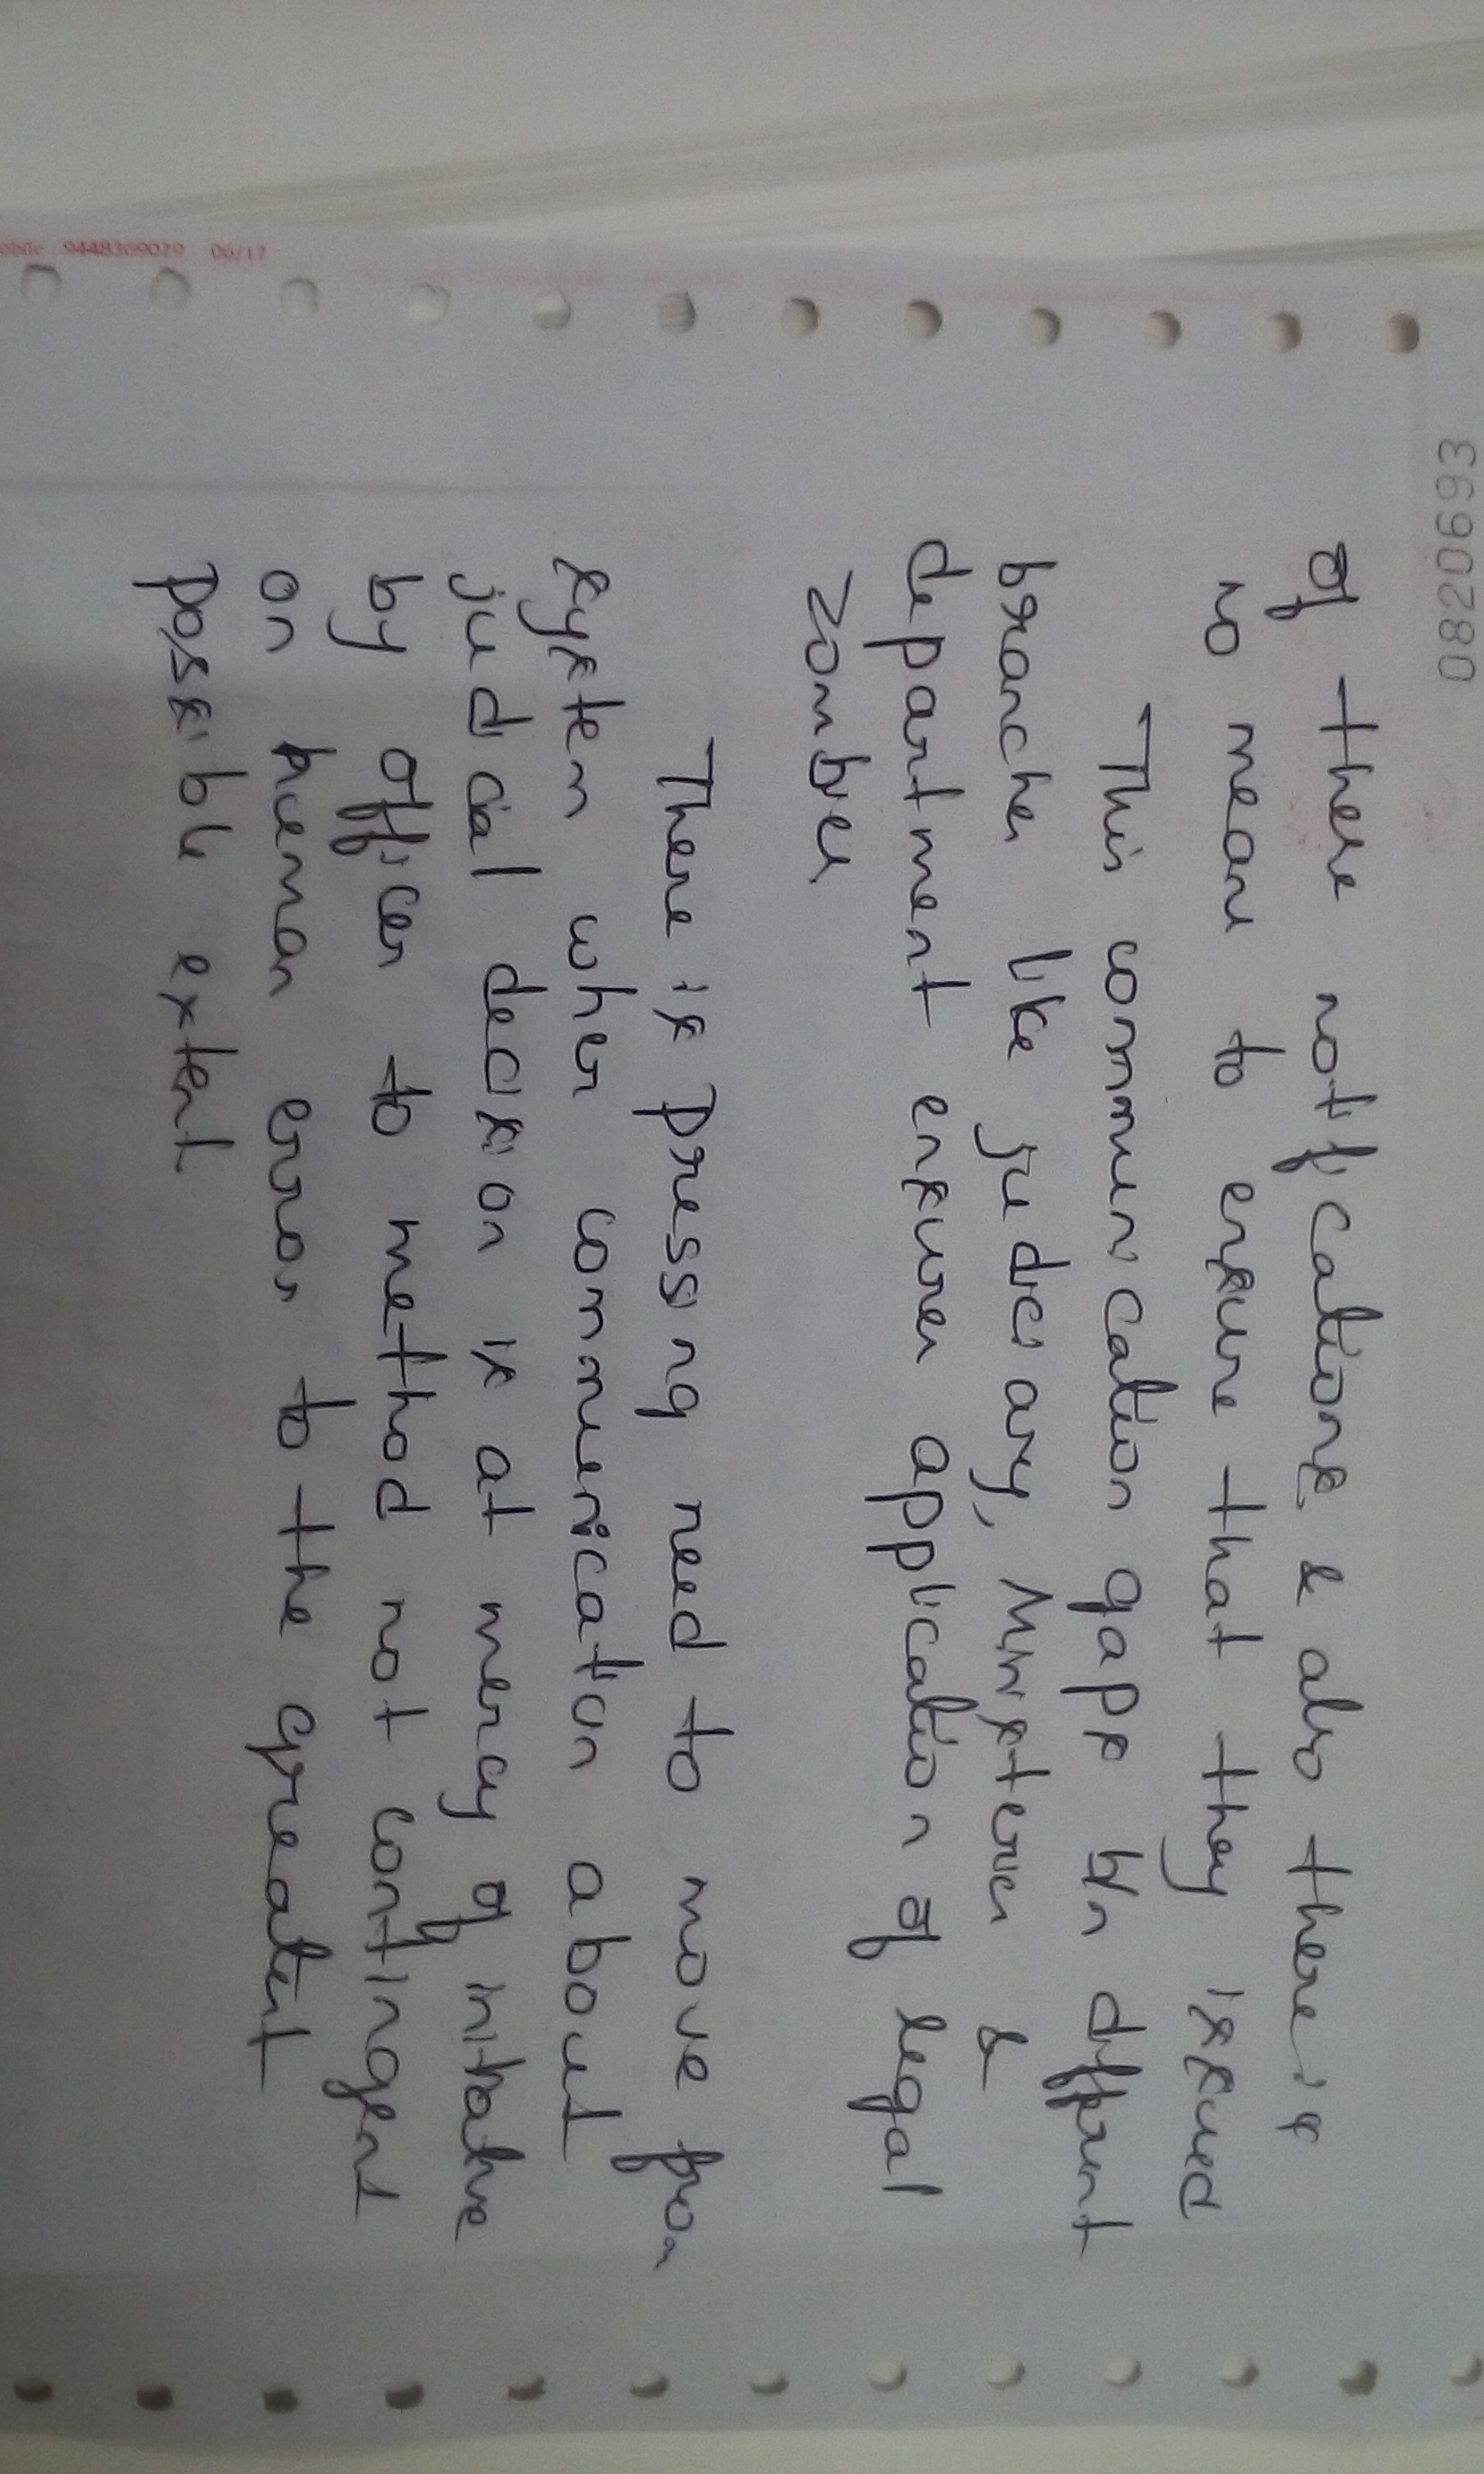 39990280
of these notifications & also there is
no means to ensure that they issued
This communication gaps b/n different
branches like judiciary, Ministeries &
department ensures application of legal
zombies
There is pressing need to move from
system when communication about
judicial decision is at mercy of initiative
by officer to method not contingent
on human error to the greatest
possible extent
obile : 9448369029 06/17